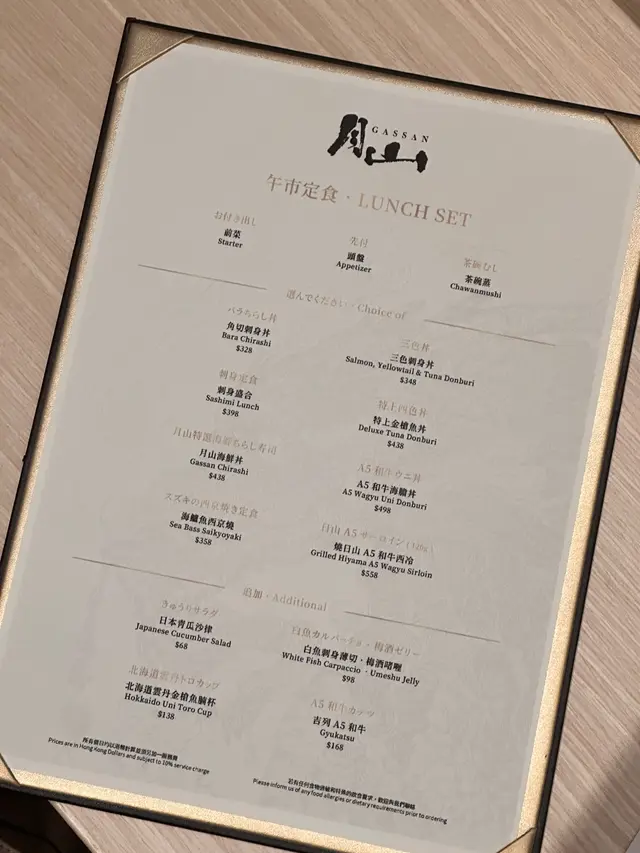 月山
GASSAN
午市定食・LUNCH SET
お付き出し
前菜
Starter
先付
頭盤
Appetizer
茶碗むし
茶碗蒸
Chawanmushi
選んでください・Choice of
バラちらし丼
角切刺身丼
Bara Chirashi
$328
三色丼
三色刺身丼
Salmon, Yellowtail & Tuna Donburi
$348
刺身定食
刺身盛合
Sashimi Lunch
$398
特上四色丼
特上金槍魚丼
Deluxe Tuna Donburi
$438
月山特選海鮮ちらし寿司
月山海鮮丼
Gassan Chirashi
$438
A5 和牛ウニ丼
A5 和牛海膽丼
A5 Wagyu Uni Donburi
$498
スズキの西京焼き定食
海鱸魚西京燒
Sea Bass Saikyoyaki
$358
日山 A5 サーロイン (120g)
燒日山 A5 和牛西冷
Grilled Hiyama A5 Wagyu Sirloin
$558
追加・Additional
きゅうりサラダ
日本青瓜沙律
Japanese Cucumber Salad
$68
白魚カルパーチョ・梅酒ゼリー
白魚刺身薄切・梅酒啫喱
White Fish Carpaccio・Umeshu Jelly
$98
北海道雲丹トロカップ
北海道雲丹金槍魚腩杯
Hokkaido Uni Toro Cup
$138
A5 和牛カッツ
吉列 A5 和牛
Gyukatsu
$168
所有價目均以港幣計算並須另加一服務費
Prices are in Hong Kong Dollars and subject to 10% service charge
若有任何食物過敏和特殊的飲食要求，歡迎與我們聯絡
Please inform us of any food allergies or dietary requirements prior to ordering